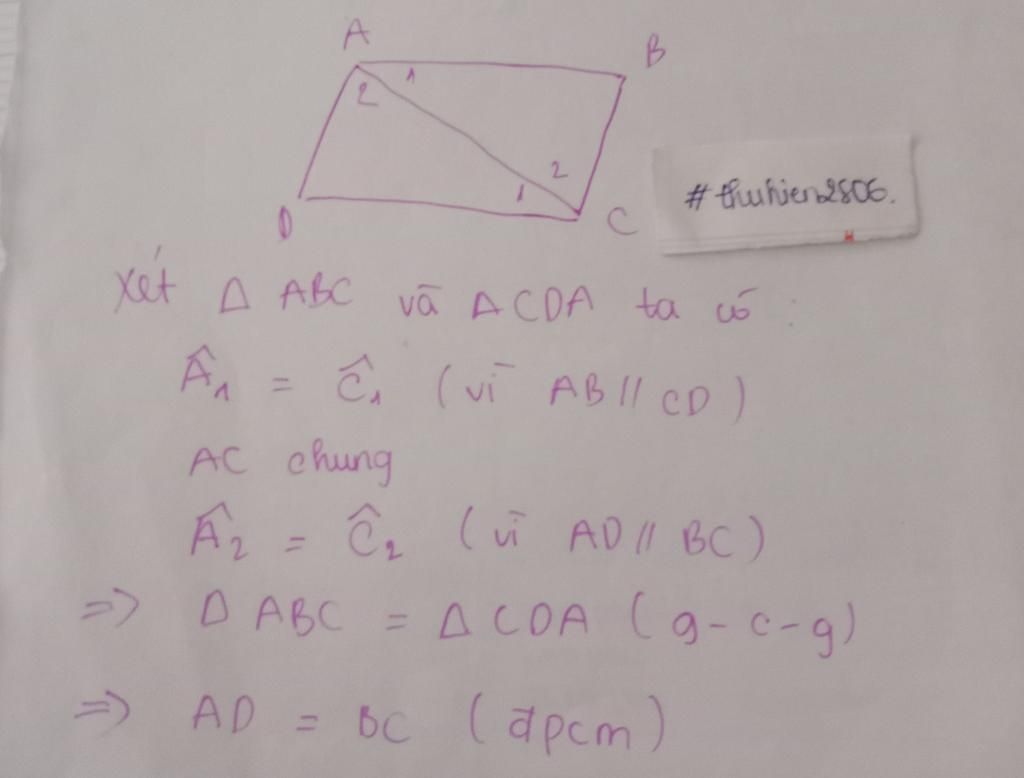 A
B
1
2
2
1
D
C
#thuhien2806.
Xét Δ ABC và Δ CDA ta có :
Â₁ = Ĉ₁ (vì AB // CD)
AC chung
Â₂ = Ĉ₂ (vì AD // BC)
=> Δ ABC = Δ CDA (g-c-g)
=> AD = BC (đpcm)